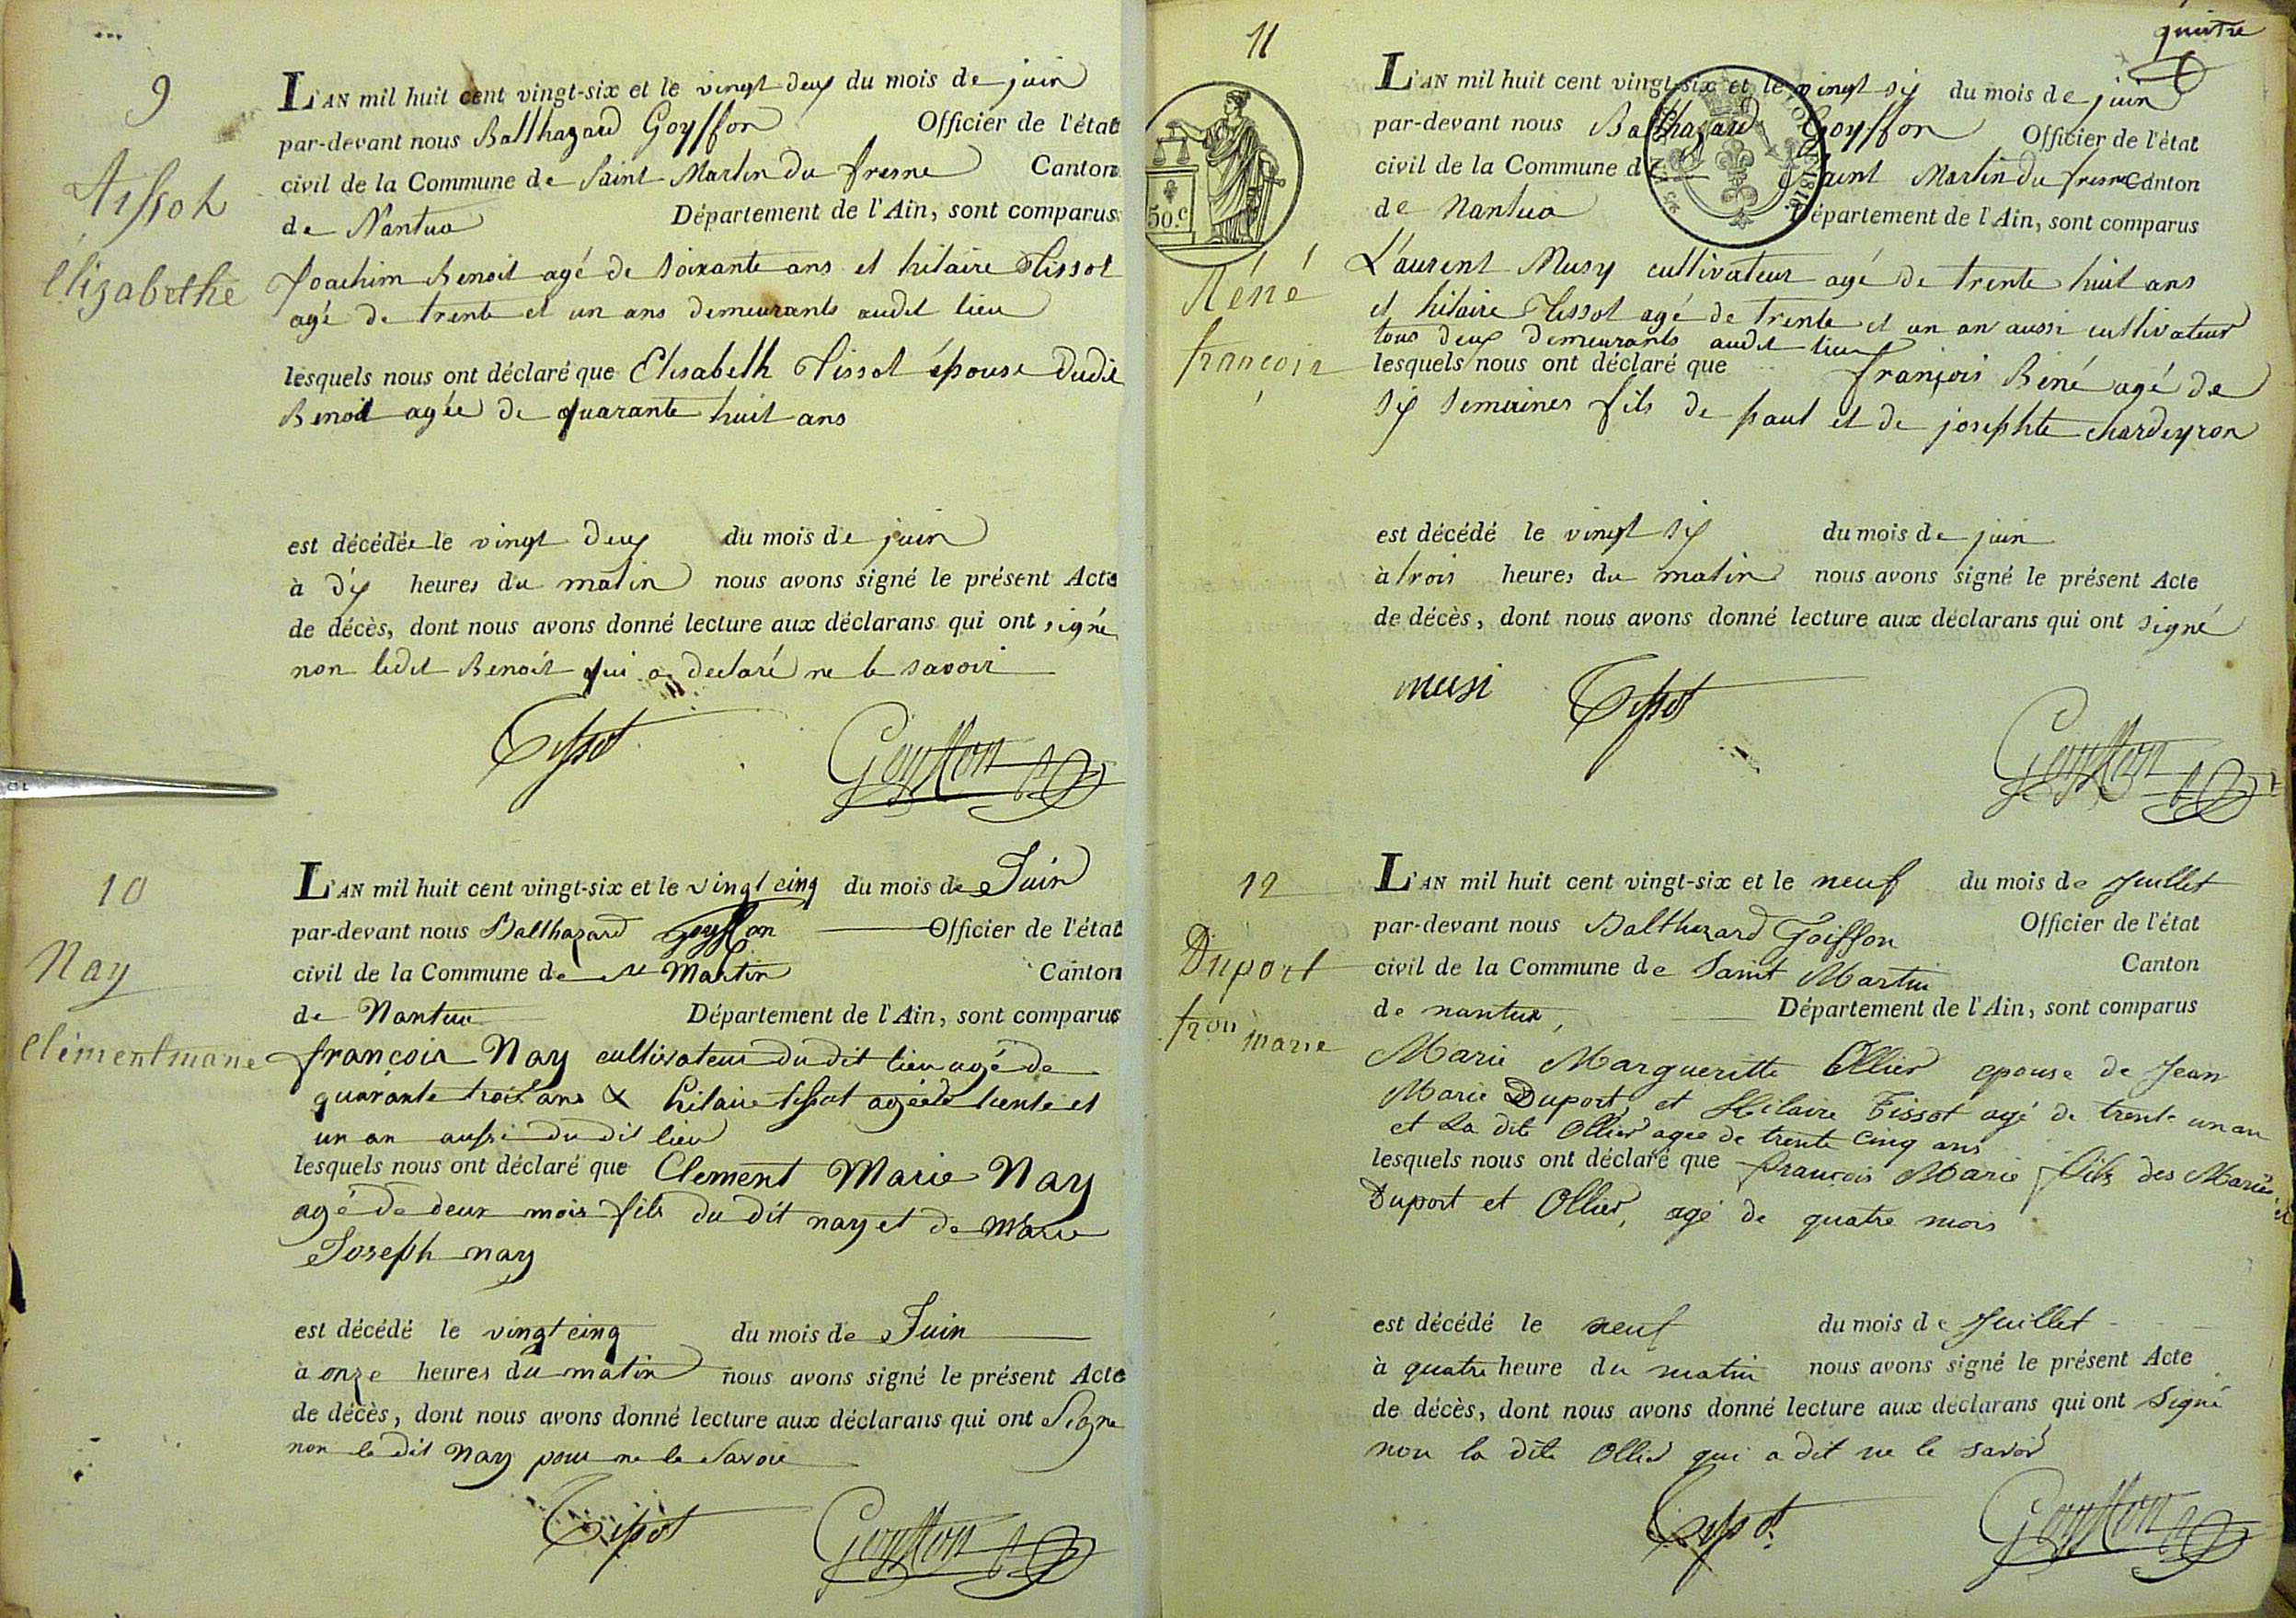 9
Tissot
Elizabethe
L'AN mil huit cent vingt-six et le vingt deux du mois de juin
par-devant nous Balthazard Goyffon Officier de l'état
civil de la Commune de Saint Martin du fresne Canton
de Nantua Département de l'Ain, sont comparus
Joachim Benoit agé de soixante ans et hilaire Tissot
agé de trente et un ans demeurants audit lieu
lesquels nous ont déclaré que Elisabeth Tissot épouse dudit
Benoit agée de quarante huit ans
est décédée le vingt deux du mois de juin
à dix heures du matin nous avons signé le présent Acte
de décès, dont nous avons donné lecture aux déclarans qui ont signé
non ledit Benoit qui a declaré ne le savoir
Tissot Goyffon
10
Nay
Clément marie
L'AN mil huit cent vingt-six et le vingt cinq du mois de Juin
par-devant nous Balthazard Goyffon Officier de l'état
civil de la Commune de St Martin Canton
de Nantua Département de l'Ain, sont comparus
françois Nay cultivateur du dit lieu agé de
quarante trois ans & hilaire tissot agé de trente et
un an aussi du dit lieu
lesquels nous ont déclaré que Clement Marie Nay
agé de deux mois fils du dit nay et de Marie
Joseph nay
est décédé le vingt cinq du mois de Juin
à onze heures du matin nous avons signé le présent Acte
de décès, dont nous avons donné lecture aux déclarans qui ont Signé
non le dit Nay pour ne le Savoir
Tissot Goyffon
quatre
11
50.c
Réné
françois
L'AN mil huit cent vingt-six et le vingt six du mois de juin
par-devant nous Balthazard Goyffon Officier de l'état
civil de la Commune de Saint Martin du fresne Canton
de Nantua Département de l'Ain, sont comparus
Laurent Musy cultivateur agé de trente huit ans
et hilaire Tissot agé de trente et un an aussi cultivateur
tous deux demeurants audit lieu
lesquels nous ont déclaré que françois Réné agé de
six semaines fils de paul et de josephte chardeyron
est décédé le vingt six du mois de juin
à trois heures du matin nous avons signé le présent Acte
de décès, dont nous avons donné lecture aux déclarans qui ont signé
musi Tissot
Goyffon
12
Duport
frçois marie
L'AN mil huit cent vingt-six et le neuf du mois de Juillet
par-devant nous Balthazard Goiffon Officier de l'état
civil de la Commune de Saint Martin Canton
de nantua, Département de l'Ain, sont comparus
Marie Margueritte Ollier epouse de Jean
Marie Duport, et Hilaire Tissot agé de trente un an
et La dite Ollier agée de trente cinq ans
lesquels nous ont déclaré que françois Marie fils des Mariés
Duport et Ollier, agé de quatre mois
est décédé le neuf du mois de Juillet
à quatre heure du matin nous avons signé le présent Acte
de décès, dont nous avons donné lecture aux déclarans qui ont Signé
non la dite Ollier qui a dit ne le savoir
Tissot Goyffon